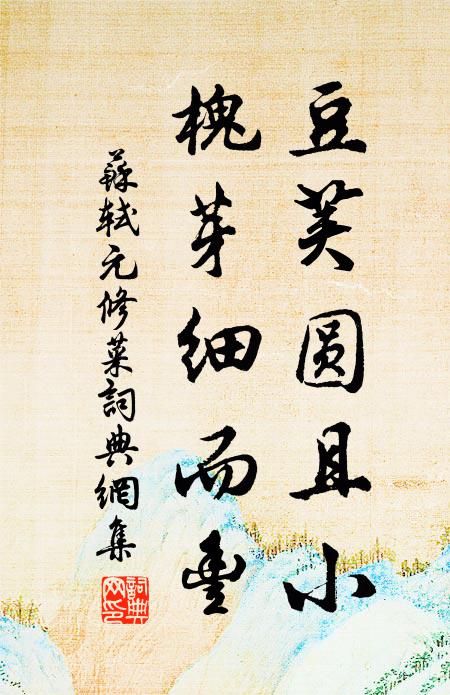 豆荚圆且小
槐芽细而丰
蘇軾元修菜詞典網集
詞典网印